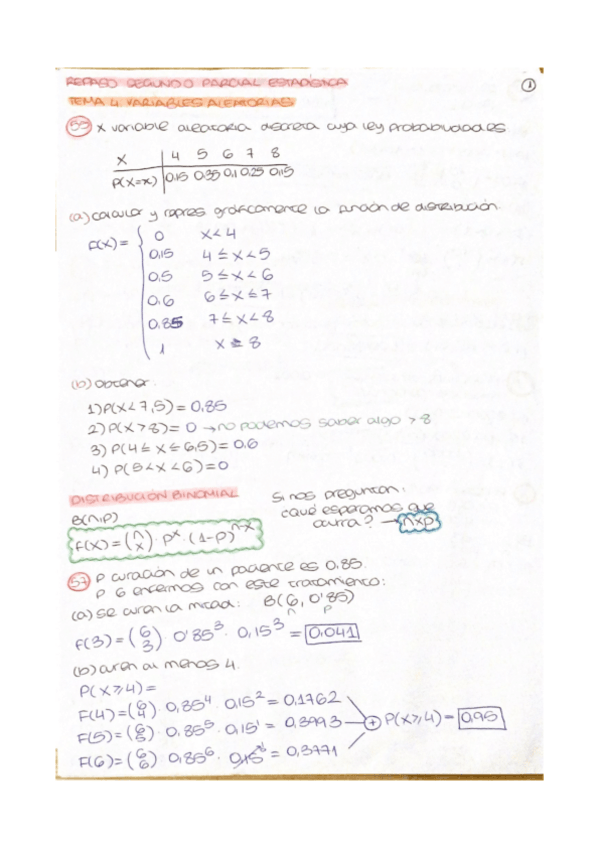 REPASO SEGUNDO PARCIAL ESTADÍSTICA
1
TEMA 4. VARIABLES ALEATORIAS
55 X variable aleatoria discreta cuya ley probabilidad es
X 4 5 6 7 8
P(X=x) 0,15 0,35 0,1 0,25 0,15
(a) calcular y repres gráficamente la función de distribución.
F(X) =
0 X<4
0,15 4≤X<5
0,5 5≤X<6
0,6 6≤X≤7
0,85 7≤X<8
1 X≥8
(b) obtener.
1) P(X<7,5) = 0,85
2) P(X>8) = 0 → no podemos saber algo > 8
3) P(4≤X≤6,5) = 0.6
4) P(5<X<6) = 0
DISTRIBUCIÓN BINOMIAL
B(n,p)
Si nos preguntan:
¿qué esperamos que
ocurra? → n×p
f(x) = (n x) · p^x · (1-p)^n-x
57 P curación de un paciente es 0,85.
P 6 enfermos con este tratamiento:
(a) se curen la mitad: B(6, 0'85)
n p
f(3) = (6 3) · 0'85³ · 0,15³ = 0,041
(b) curen al menos 4.
P(X≥4) =
f(4) = (6 4) · 0,85⁴ · 0.15² = 0,1762
f(5) = (6 5) · 0.85⁵ · 0,15¹ = 0,3993
+ P(X≥4) = 0,95
f(6) = (6 6) 0,85⁶ · 0,15⁰ = 0,3771